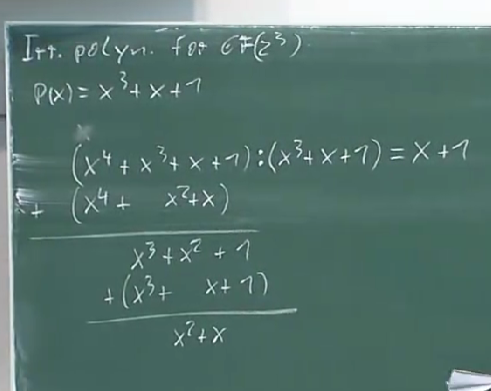 Irr. polyn. for GF(2³)
P(x) = x³ + x + 1
(x⁴ + x³ + x + 1) : (x³ + x + 1) = x + 1
+ (x⁴ + x² + x)
x³ + x² + 1
+ (x³ + x + 1)
x² + x